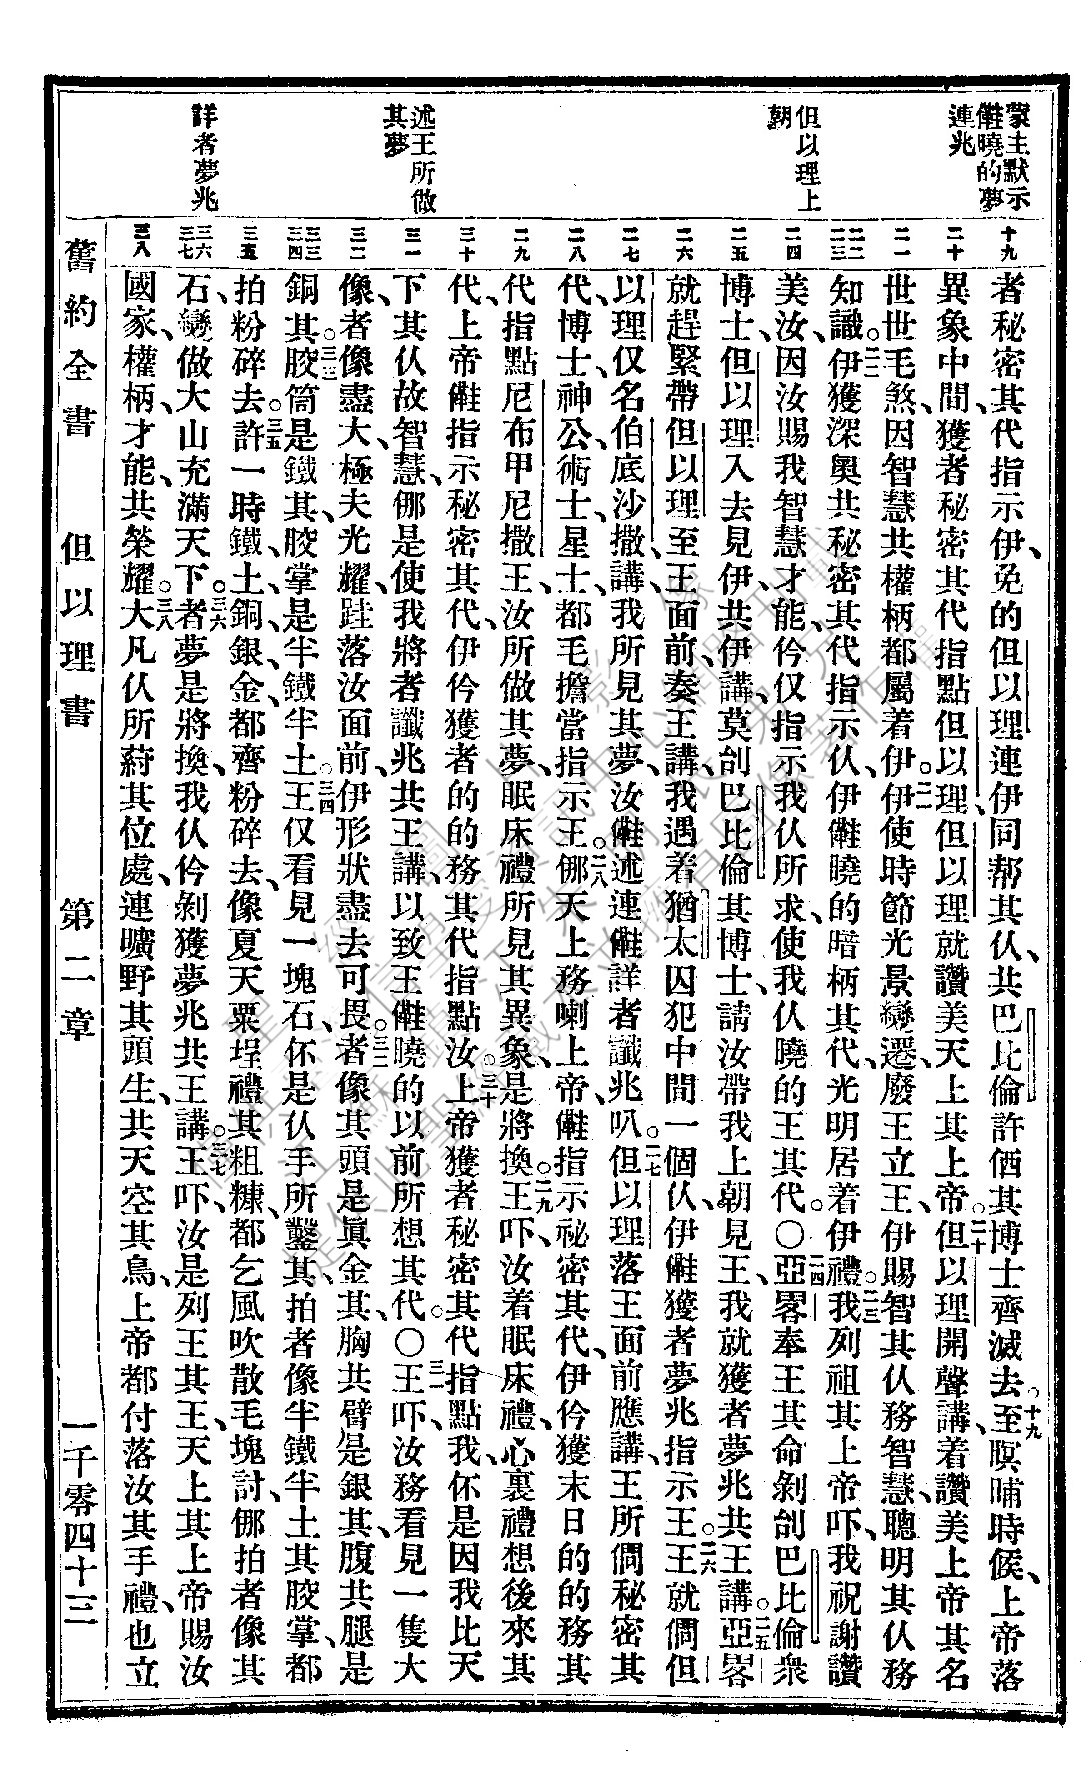 蒙主默示
𠲥曉的夢
連兆
但以理上
朝
述王所做
其夢
詳者夢兆
十九
二十
二一
二二
二三
二四
二五
二六
二七
二八
二九
三十
三一
三二
三三
三四
三五
三六
三七
三八
者秘密其代指示伊免的但以理連伊同幫其伩共巴比倫許個其博士齊滅去○十九至暝晡時候上帝落
異象中間獲者秘密其代指點但以理但以理就讚美天上其上帝○二十但以理開聲講着讚美上帝其名
世世毛煞因智慧共權柄都屬着伊○二一伊使時節光景變遷廢王立王伊賜智其伩務智慧聰明其伩務
知識○二二伊獲深奧共秘密其代指示伩伊曉的暗柄其代光明居着伊禮○二三我列祖其上帝吓我祝謝讚
美汝因汝賜我智慧才能伶仅指示我伩所求使我伩曉的王其代○二四亞畧奉王其命剝刣巴比倫衆
博士但以理入去見伊共伊講莫刣巴比倫其博士請汝帶我上朝見王我就獲者夢兆共王講○二五亞畧
就趕緊帶但以理至王面前奏王講我遇着猶太囚犯中間一個伩伊獲者夢兆指示王○二六王就問但
以理仅名伯底沙撒講我所見其夢汝述連詳者讖兆叭○二七但以理落王面前應講王所問秘密其
代博士神公術士星士都毛擔當指示王○二八那天上務喇上帝指示祕密其代伊伶獲末日的的務其
代指點尼布甲尼撒王汝所做其夢眠床禮所見其異象是將換○二九王吓汝着眠床禮心裏禮想後來其
代上帝指示秘密其代伊伶獲者的的務其代指點汝○三十上帝獲者秘密其代指點我怀是因我比天
下其伩故智慧那是使我將者讖兆共王講以致王曉的以前所想其代○三一王吓汝務看見一隻大
像者像盡大極夫光耀跬落汝面前伊形狀盡去可畏○三二者像其頭是眞金其胸共臂是銀其腹共腿是
銅其○三三骹筒是鐵其骹掌是半鐵半土○三四王仅看見一塊石怀是伩手所鑿其拍者像半鐵半土其骹掌都
拍粉碎去○三五許一時鐵土銅銀金都齊粉碎去像夏天粟埕禮其粗糠都乞風吹散毛塊討那拍者像其
石變做大山充滿天下○三六者夢是將換我伩伶剝獲夢兆共王講○三七王吓汝是列王其王天上其上帝賜汝
國家權柄才能共榮耀○三八大凡伩所蒔其位處連曠野其頭生共天空其鳥上帝都付落汝其手禮也立
舊約全書 但以理書 第二章 一千零四十三